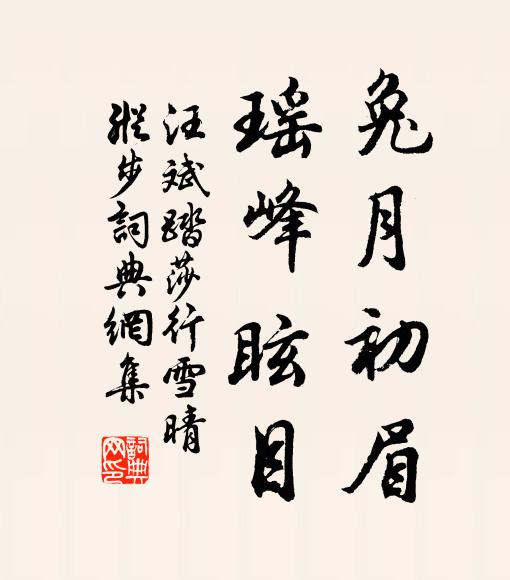 兔月初眉
瑶峰眩目
汪斌踏莎行雪晴
縱步詞典網集
詞典
网印